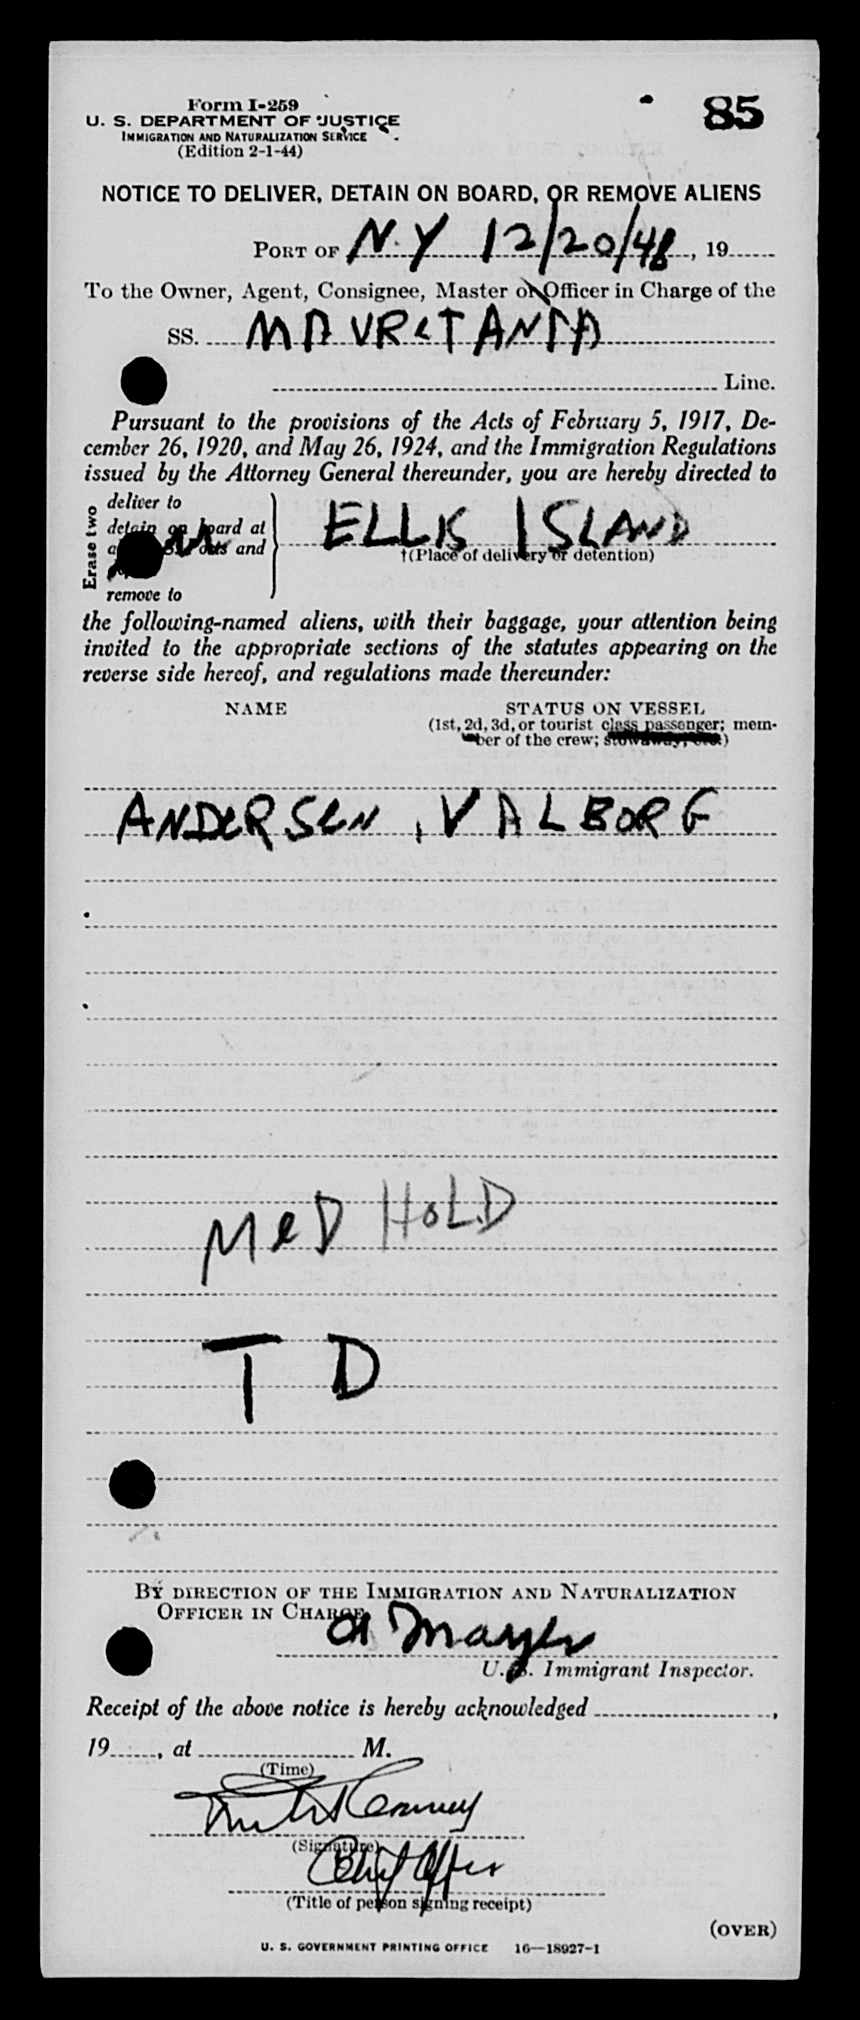 Form I-259
85
U. S. DEPARTMENT OF JUSTICE
IMMIGRATION AND NATURALIZATION SERVICE
(Edition 2-1-44)
NOTICE TO DELIVER, DETAIN ON BOARD, OR REMOVE ALIENS
PORT OF N.Y 12/20/48, 19
To the Owner, Agent, Consignee, Master or Officer in Charge of the
SS. MAURETANIA
Line.
Pursuant to the provisions of the Acts of February 5, 1917, De-
cember 26, 1920, and May 26, 1924, and the Immigration Regulations
issued by the Attorney General thereunder, you are hereby directed to
Erase two
deliver to
detain on board at
and
remove to
ELLIS ISLAND
†(Place of delivery or detention)
the following-named aliens, with their baggage, your attention being
invited to the appropriate sections of the statutes appearing on the
reverse side hereof, and regulations made thereunder:
NAME STATUS ON VESSEL
(1st, 2d, 3d, or tourist class passenger; mem-
ber of the crew; stowaway, etc.)
ANDERSEN, VALBORG
MED HOLD
T D
BY DIRECTION OF THE IMMIGRATION AND NATURALIZATION
OFFICER IN CHARGE
Mayer
U. S. Immigrant Inspector.
Receipt of the above notice is hereby acknowledged ,
19 , at M.
(Time)
(Signature)
Chief Officer
(Title of person signing receipt)
(OVER)
U. S. GOVERNMENT PRINTING OFFICE 16—18927-1